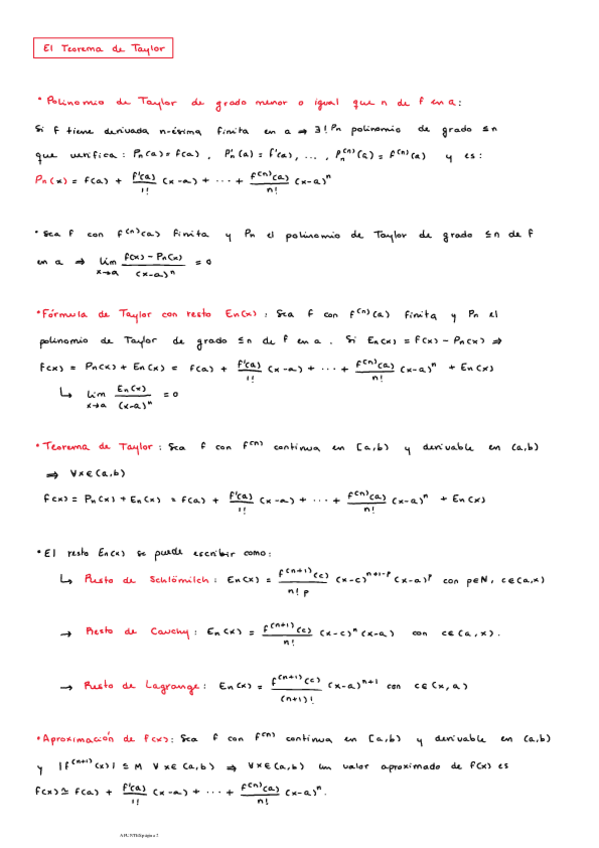 El Teorema de Taylor
• Polinomio de Taylor de grado menor o igual que n de f en a:
Si f tiene derivada n-ésima finita en a ⇒ ∃! Pn polinomio de grado ≤n
que verifica: Pn(a) = f(a), P'n(a) = f'(a), ..., Pn^(n)(a) = f^(n)(a) y es:
Pn(x) = f(a) + f'(a)/1! (x-a) + ... + f^(n)(a)/n! (x-a)^n
• Sea f con f^(n)(a) finita y Pn el polinomio de Taylor de grado ≤n de f
en a ⇒ lim x→a (f(x) - Pn(x))/(x-a)^n = 0
• Fórmula de Taylor con resto En(x): Sea f con f^(n)(a) finita y Pn el
polinomio de Taylor de grado ≤n de f en a. Si En(x) = f(x) - Pn(x) ⇒
f(x) = Pn(x) + En(x) = f(a) + f'(a)/1! (x-a) + ... + f^(n)(a)/n! (x-a)^n + En(x)
↳ lim x→a En(x)/(x-a)^n = 0
• Teorema de Taylor: Sea f con f^(n) continua en [a,b) y derivable en (a,b)
⇒ ∀x∈(a,b)
f(x) = Pn(x) + En(x) = f(a) + f'(a)/1! (x-a) + ... + f^(n)(a)/n! (x-a)^n + En(x)
• El resto En(x) se puede escribir como:
↳ Resto de Schlömilch: En(x) = f^(n+1)(c)/(n! p) (x-c)^(n+1-p) (x-a)^p con p∈N, c∈(a,x)
→ Resto de Cauchy: En(x) = f^(n+1)(c)/n! (x-c)^n (x-a) con c∈(a,x).
→ Resto de Lagrange: En(x) = f^(n+1)(c)/(n+1)! (x-a)^(n+1) con c∈(x,a)
• Aproximación de f(x): Sea f con f^(n) continua en [a,b) y derivable en (a,b)
y |f^(n+1)(x)| ≤ M ∀x∈(a,b) ⇒ ∀x∈(a,b) un valor aproximado de f(x) es
f(x) ≅ f(a) + f'(a)/1! (x-a) + ... + f^(n)(a)/n! (x-a)^n.